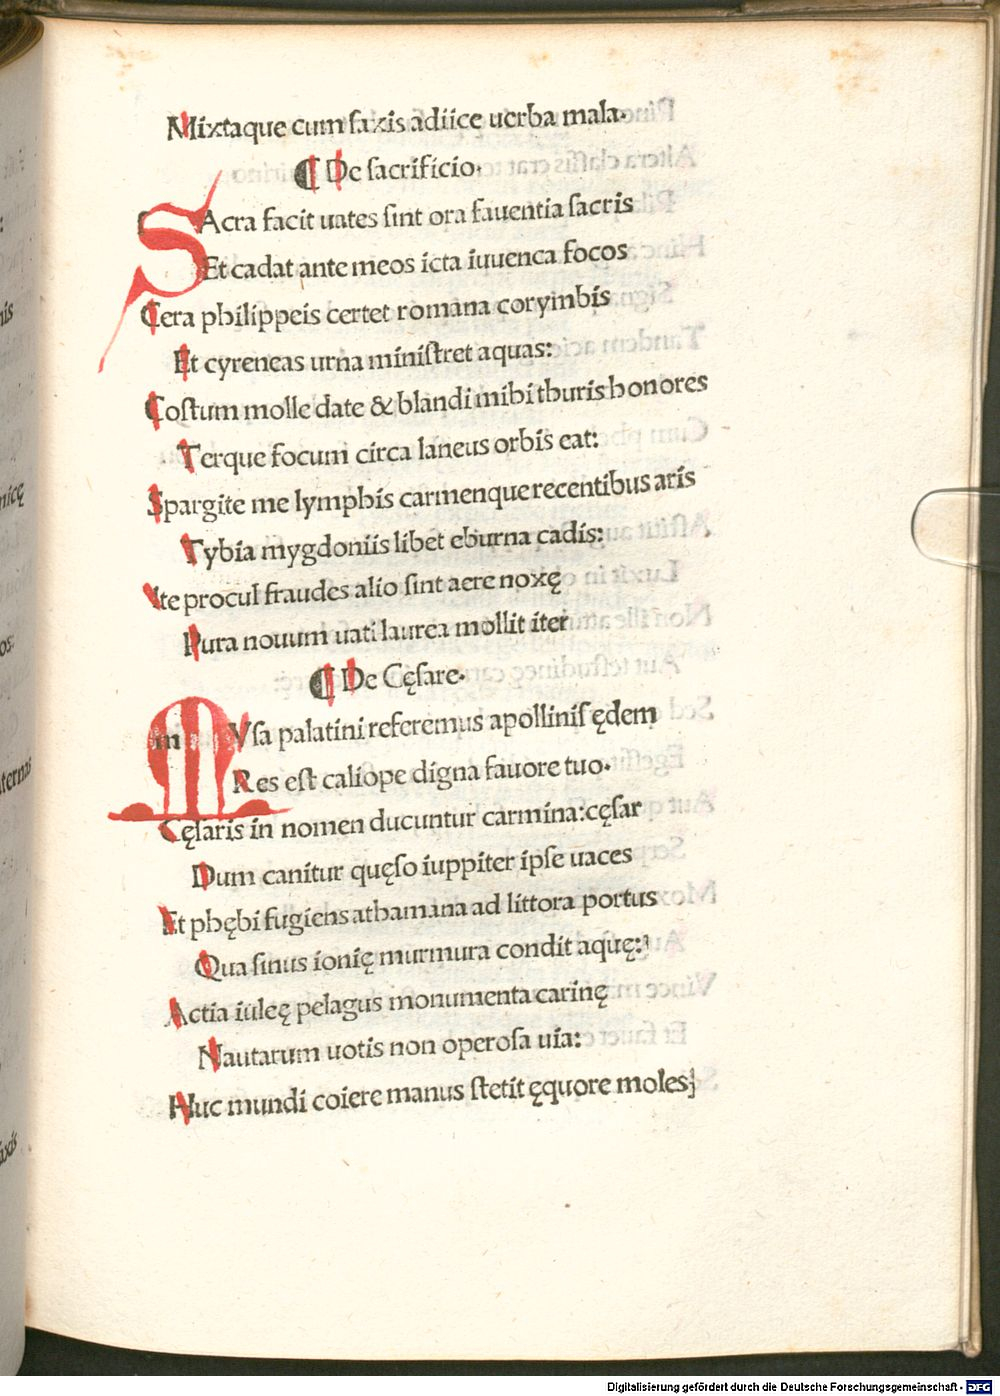 Mixtaque cum saxis adiice uerba mala.
¶ De sacrificio.
SAcra facit uates sint ora fauentia sacris
Et cadat ante meos icta iuuenca focos
Cera philippeis certet romana corymbis
Et cyreneas urna ministret aquas:
Costum molle date & blandi mihi thuris honores
Terque focum circa laneus orbis eat:
Spargite me lymphis carmenque recentibus aris
Tybia mygdoniis libet eburna cadis:
Ite procul fraudes alio sint aere noxę
Pura nouum uati laurea mollit iter
¶ De Cęsare.
MVsa palatini referemus apollinis ędem
Res est caliope digna fauore tuo.
Cęsaris in nomen ducuntur carmina: cęsar
Dum canitur quęso iuppiter ipse uaces
Et phębi fugiens athamana ad littora portus
Qua sinus ionię murmura condit aquę:
Actia iuleę pelagus monumenta carinę
Nautarum uotis non operosa uia:
Huc mundi coiere manus stetit ęquore moles
Digitalisierung gefördert durch die Deutsche Forschungsgemeinschaft - DFG